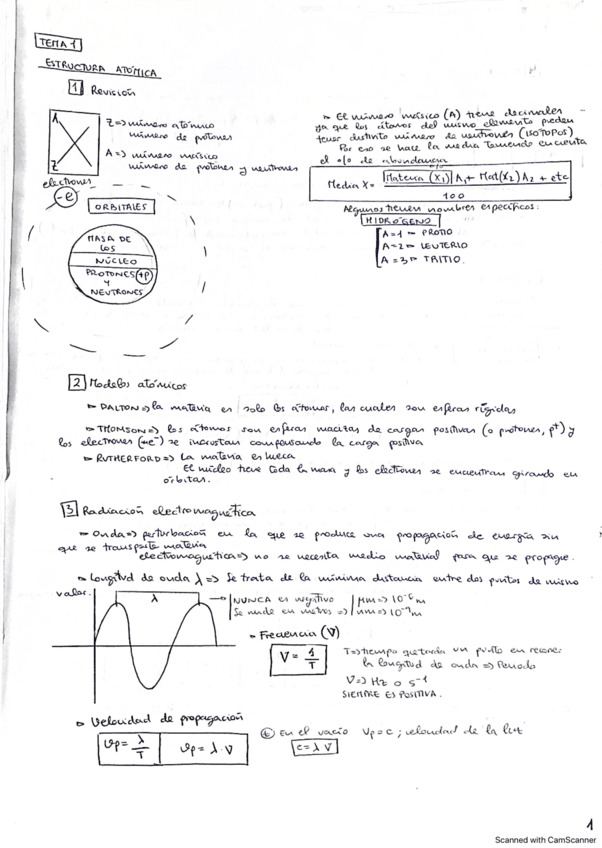 TEMA 1
ESTRUCTURA ATÓMICA
1 Revisión
A
Z
Z => número atómico
número de protones
A => número másico
número de protones y neutrones
electrones
-e
ORBITALES
MASA DE
LOS
NÚCLEO
PROTONES (+p)
Y
NEUTRONES
El número másico (A) tiene decimales
ya que los átomos del mismo elemento pueden
tener distinto número de neutrones (ISÓTOPOS)
Por eso se hace la media teniendo en cuenta
el o/o de abundancia
Media X = (X1) A1 + Mat(X2) A2 + etc
100
Algunos tienen nombres específicos:
HIDRÓGENO
A=1 PROTIO
A=2 DEUTERIO
A=3 TRITIO.
2 Modelos atómicos
DALTON => la materia es solo los átomos, las cuales son esferas rígidas
THOMSON => los átomos son esferas macizas de cargas positivas (o protones, p+) y
los electrones (e-) se incrustan compensando la carga positiva
RUTHERFORD => La materia es hueca
El núcleo tiene toda la masa y los electrones se encuentran girando en
órbitas.
3 Radiación electromagnética
Onda => perturbación en la que se produce una propagación de energía sin
que se transporte materia
electromagnética => no se necesita medio material para que se propague.
Longitud de onda λ => Se trata de la mínima distancia entre dos puntos de mismo
valor.
λ
NUNCA es negativo
Se mide en metros =>
μm => 10^-6 m
nm => 10^-9 m
Frecuencia (ν)
ν = 1/T
T => tiempo que tarda un punto en recorrer
la longitud de onda => Periodo
ν => Hz o s^-1
SIEMPRE ES POSITIVA.
Velocidad de propagación
vp = λ/T
vp = λ · ν
En el vacío vp = c ; velocidad de la luz
c = λ ν
1
Scanned with CamScanner